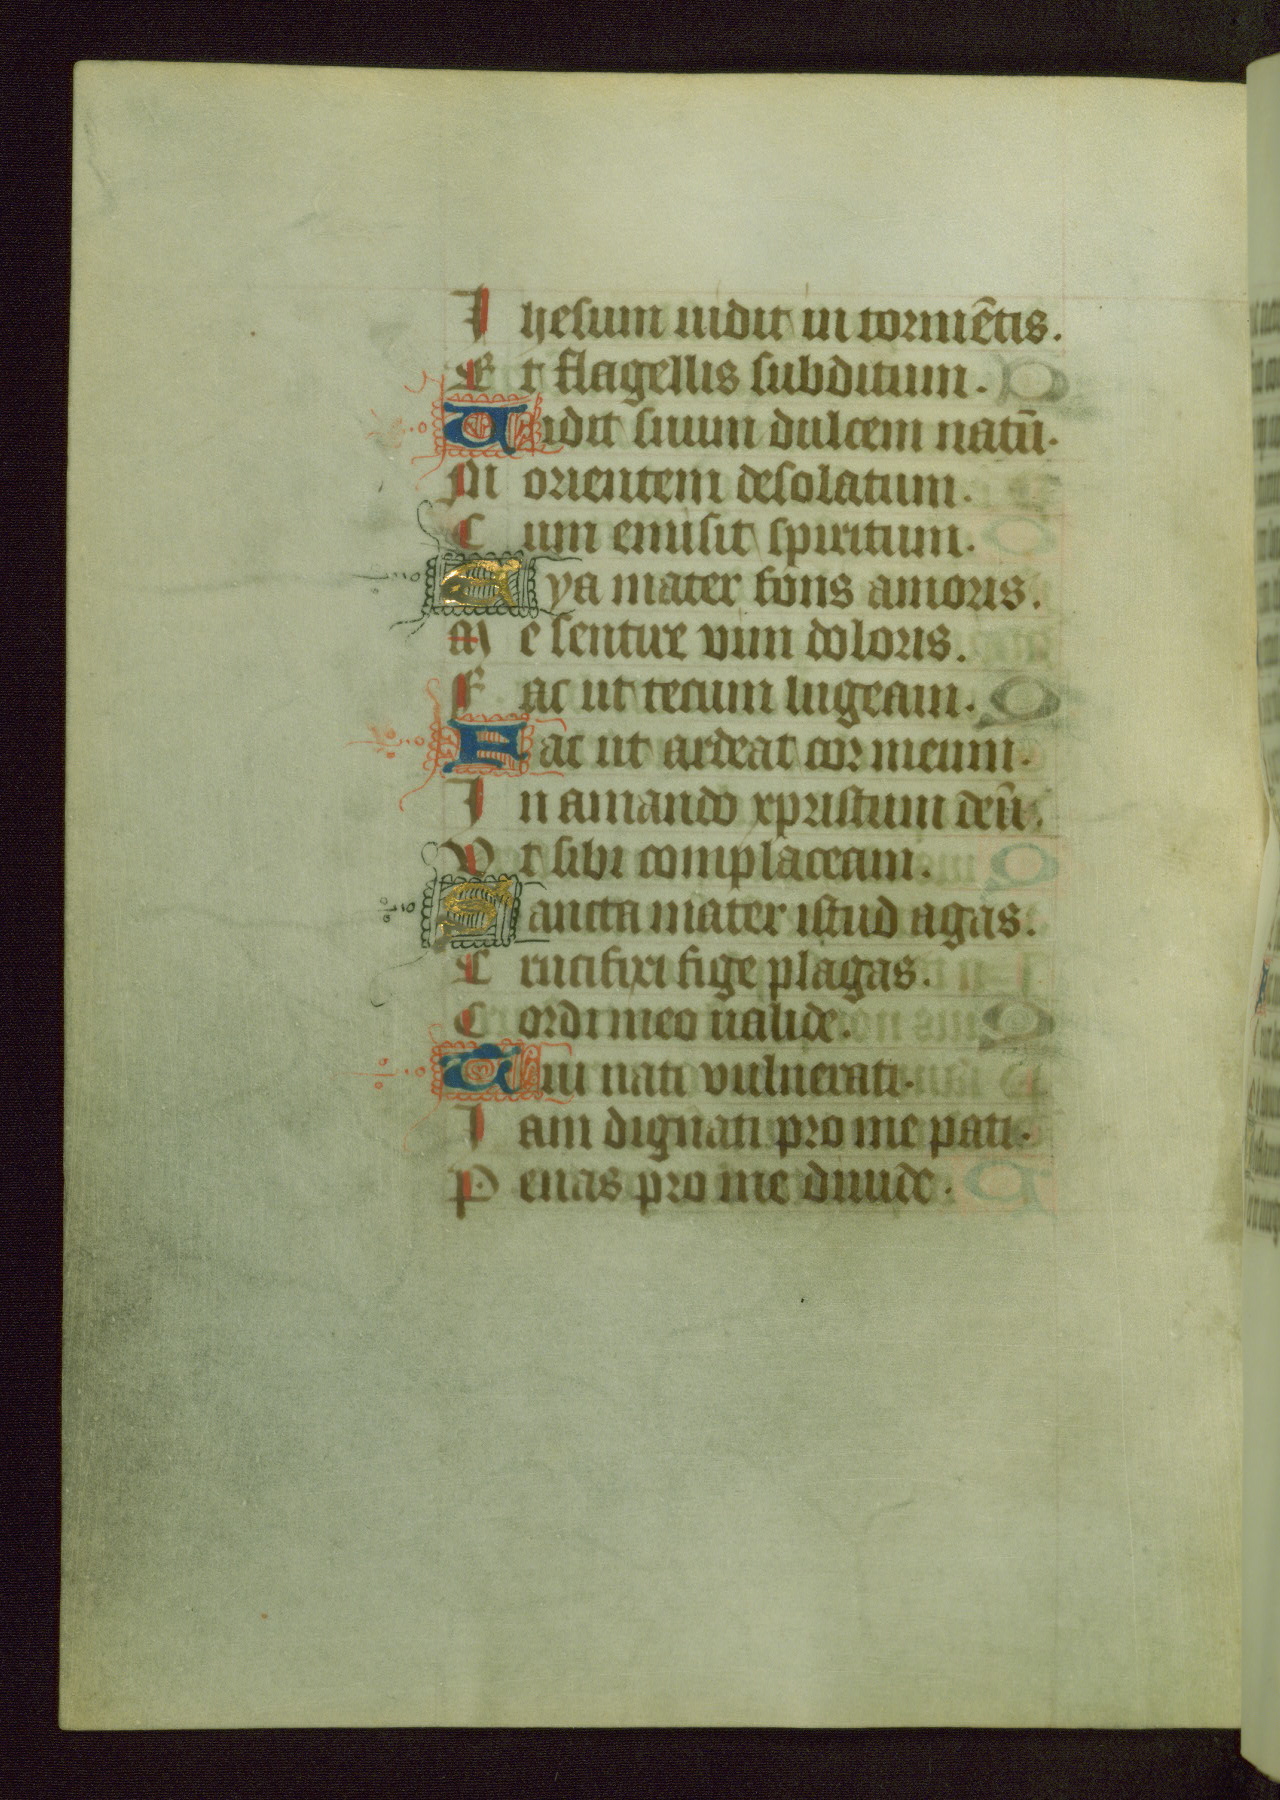 Ihesum uidit in tormētis.
Et flagellis subditum.
Uidit suum dulcem natū.
Morientem desolatum.
Cum emisit spiritum.
Eya mater fons amoris.
Me sentire vim doloris.
Fac ut tecum lugeam.
Fac ut ardeat cor meum.
In amando xpristum deū.
Ut sibi complaceam.
Sancta mater istud agas.
Crucifixi fige plagas.
Cordi meo ualide.
Tui nati vulnerati.
Iam dignati pro me pati.
Penas pro me diuide.